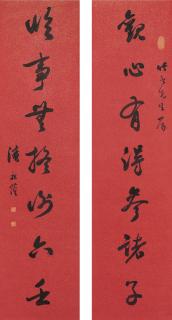 觀心有得參諸子
臨事無疑問六壬
先生屬
潘祖蔭